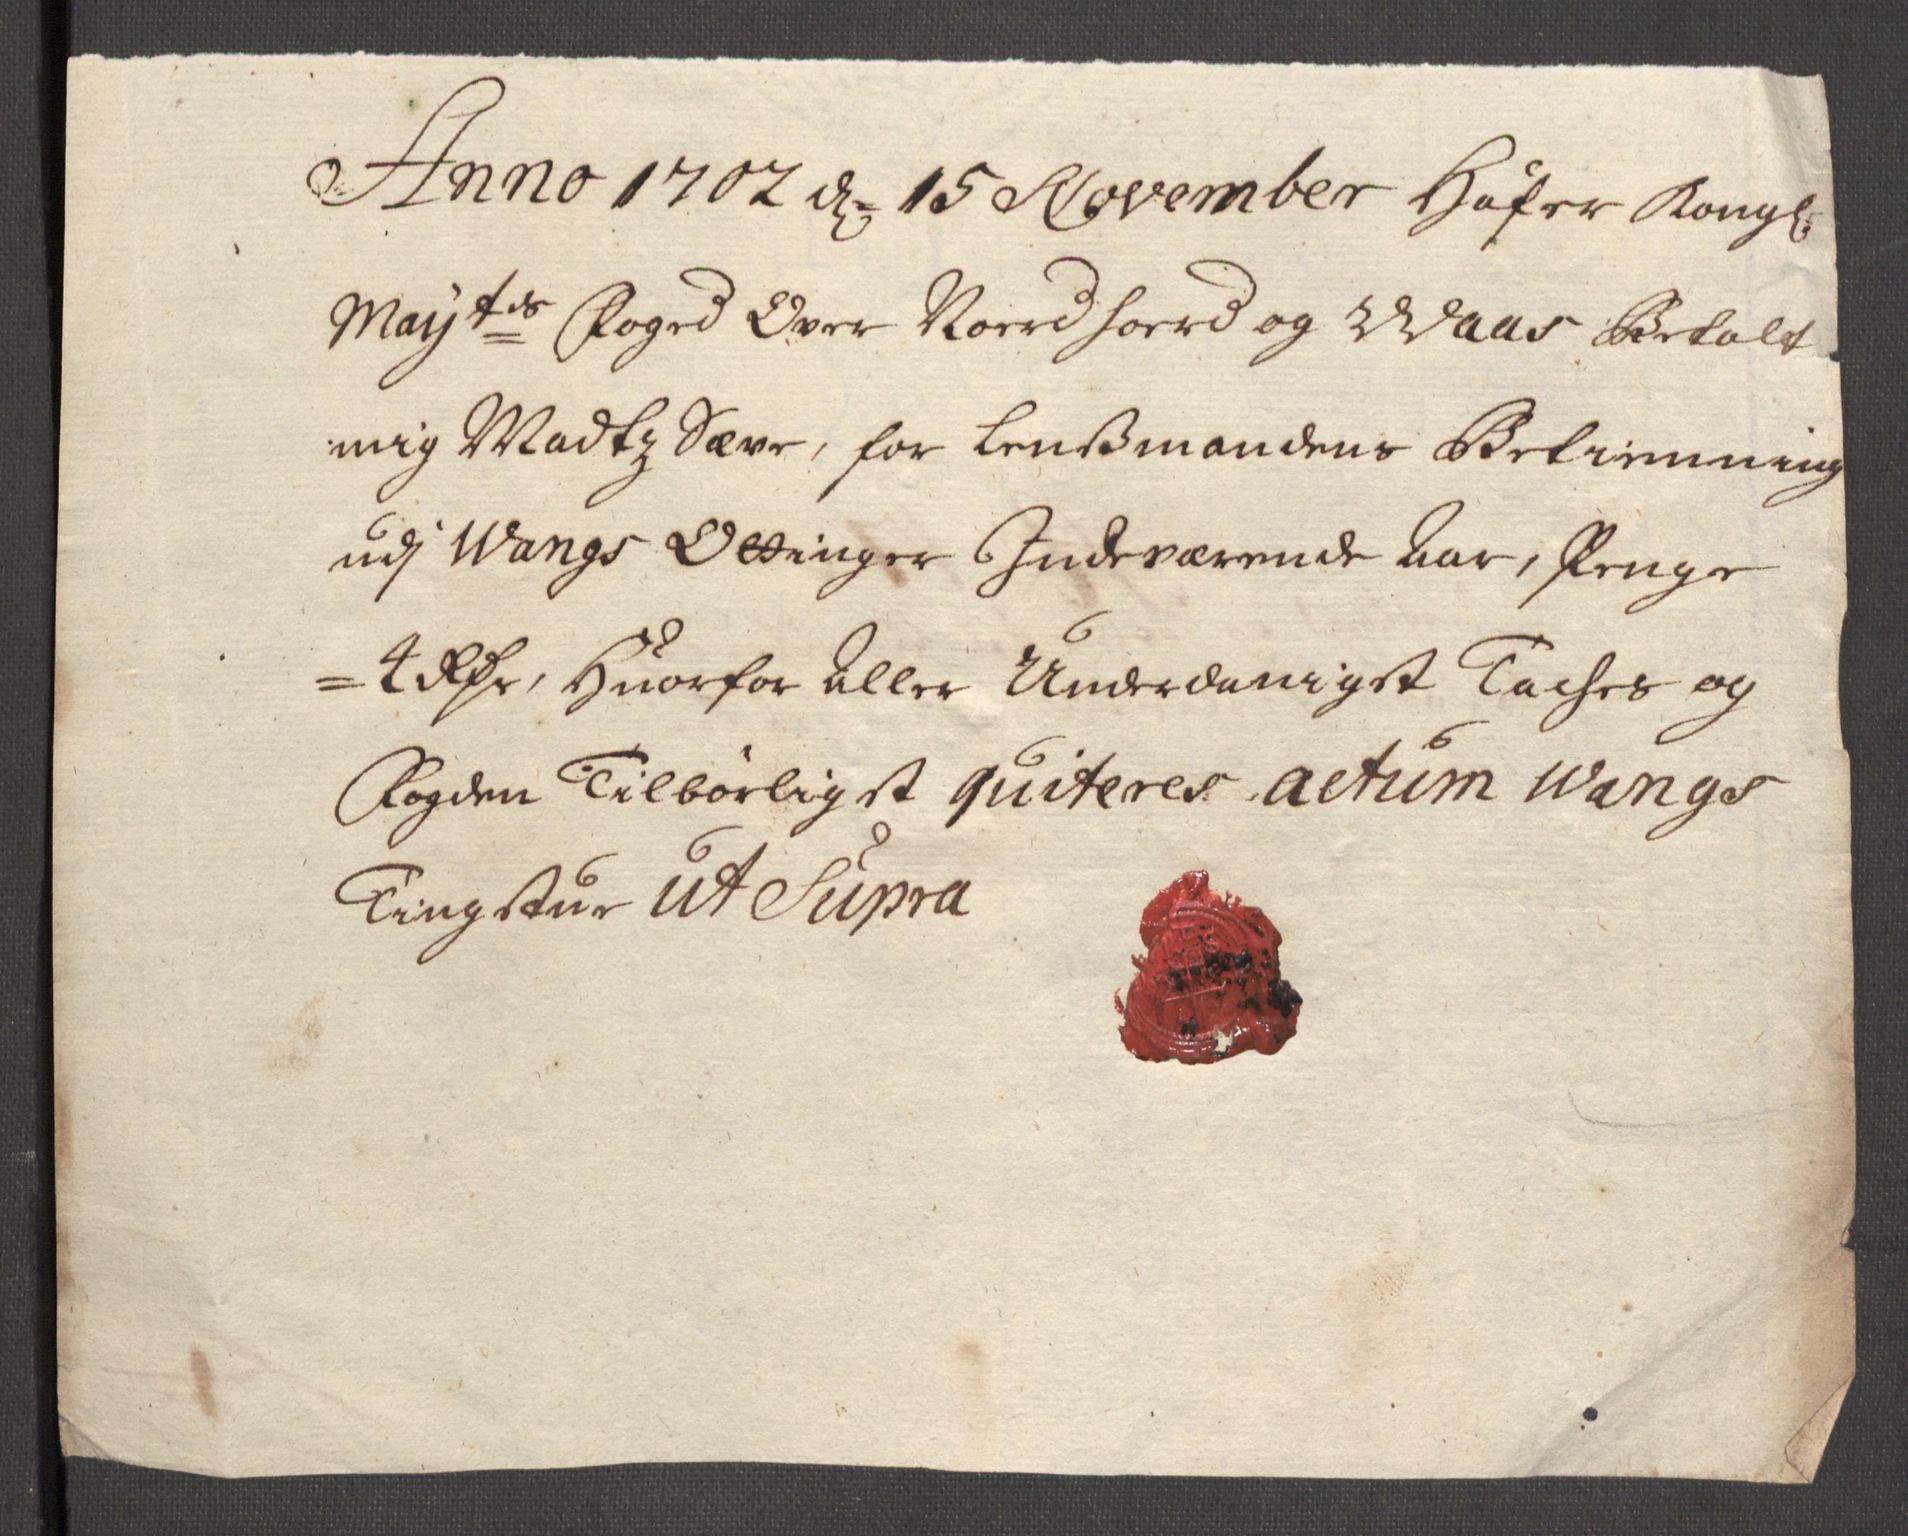 Anno 1702 d: 15 November Hafer Kongl:
May:tds Foged Over Noerdhoerd og Waas Betalt
mig Madtz Sæve, for Lenßmandens Betienning
udj Wangs Ottinger Indeværende Aar, Penge
=4 Rdr, Huorfor Aller Underdanigst Tackes og
Fogden Tilbørligst quiteres actum Wangs
Tingstue ut Supra